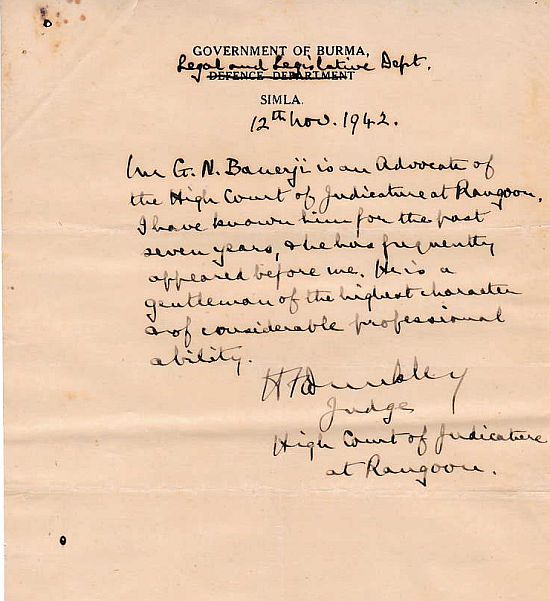 GOVERNMENT OF BURMA,
Legal and Legislative Dept.
DEFENCE DEPARTMENT
SIMLA.
12th Nov. 1942.
Mr G. N. Banerji is an Advocate of
the High Court of Judicature at Rangoon.
I have known him for the past
seven years, & he has frequently
appeared before me. He is a
gentleman of the highest character
& of considerable professional
ability.
H F Dunkley
Judge
High Court of Judicature
at Rangoon.